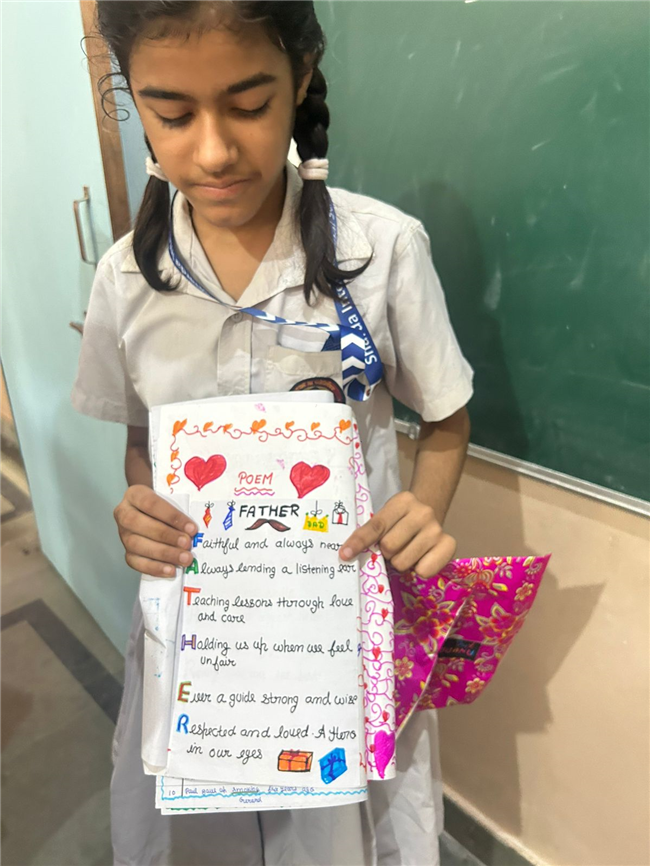 POEM
FATHER
DAD
Faithful and always near
Always lending a listening ear
Teaching lessons through love
and care
Holding us up when we feel
unfair
Ever a guide strong and wise
Respected and loved. A Hero
in our eyes
10